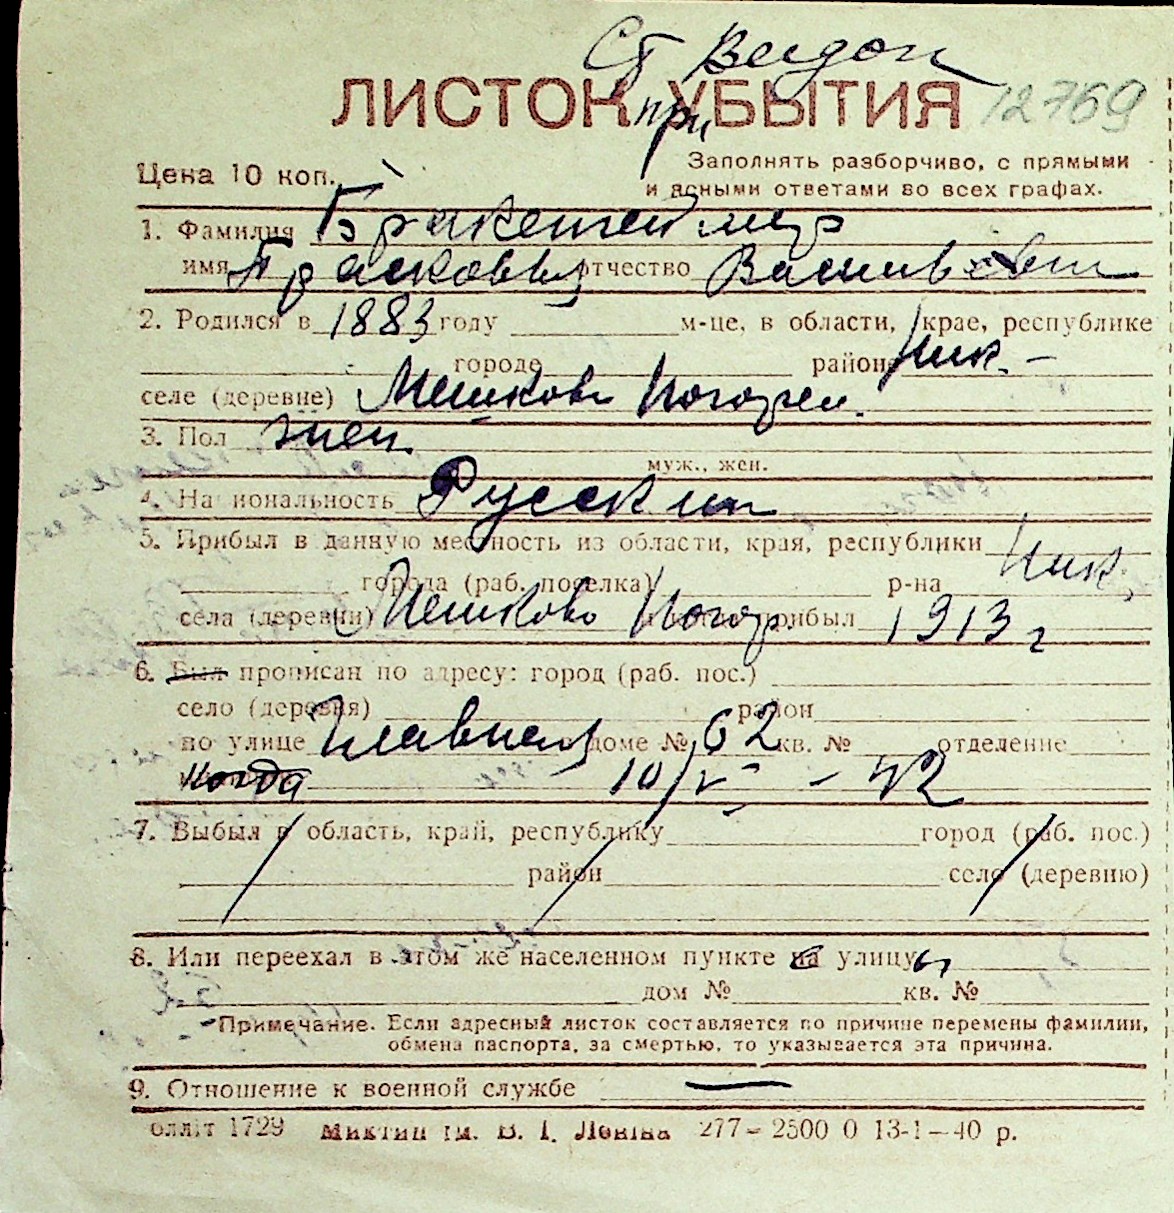 Ст Водоп
ЛИСТОК УБЫТИЯ 12769
при
Цена 10 коп. Заполнять разборчиво, с прямыми
и ясными ответами во всех графах.
1. Фамилия
имя Прасковья отчество Васильевн
2. Родился в 1883 году м-це, в области, крае, республике
городе районе Ник.
селе (деревне) Мешково Погорел.
3. Пол жен.
муж., жен.
4. На иональность Русский
5. Прибыл в данную местность из области, края, республики
города (раб. поселка) р-на Ник.
села (деревни) Мешково Погор. прибыл 1913 г
6. Был прописан по адресу: город (раб. пос.)
село (деревня) район
по улице Главная доме № 62 кв. № отделение
когда 10/V - 42
7. Выбыл в область, край, республику город (раб. пос.)
район село (деревню)
8. Или переехал в этом же населенном пункте на улицу
дом № кв. №
Примечание. Если адресный листок составляется по причине перемены фамилии,
обмена паспорта, за смертью, то указывается эта причина.
9. Отношение к военной службе —
олліт 1729 Миктип ім. В. І. Леніна 277 — 2500 0 13-1—40 р.